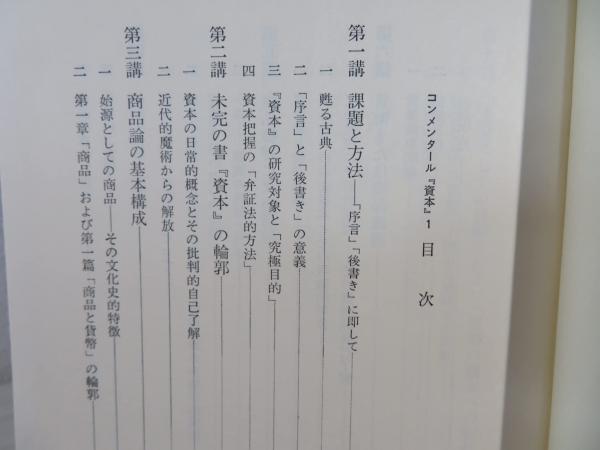 コンメンタール『資本』1 目次
第一講 課題と方法——「序言」「後書き」に即して
一 甦る古典
二 「序言」と「後書き」の意義
三 『資本』の研究対象と「究極目的」
四 資本把握の「弁証法的方法」
第二講 未完の書『資本』の輪郭
一 資本の日常的概念とその批判的自己了解
二 近代的魔術からの解放
第三講 商品論の基本構成
一 始源としての商品——その文化史的特徴
二 第一章「商品」および第一篇「商品と貨幣」の輪郭